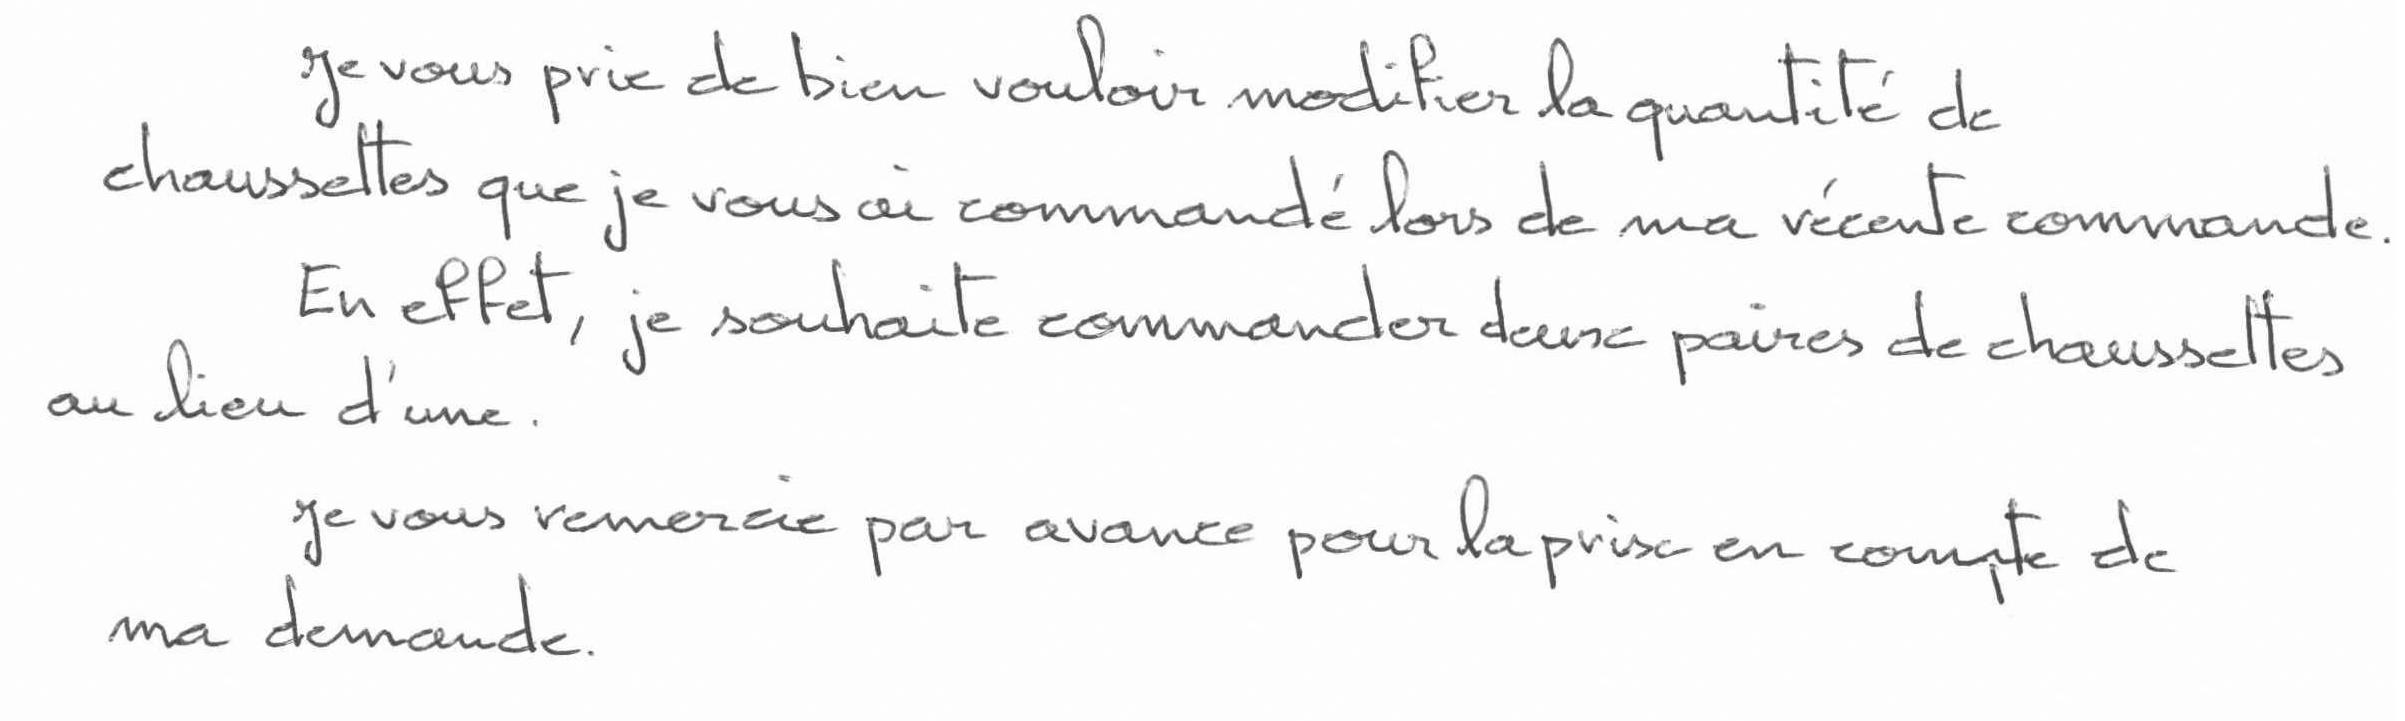 Je vous prie de bien vouloir modifier la quantité de
chaussettes que je vous ai commandé lors de ma récente commande.
En effet, je souhaite commander deux paires de chaussettes
au lieu d'une.
Je vous remercie par avance pour la prise en compte de
ma demande.